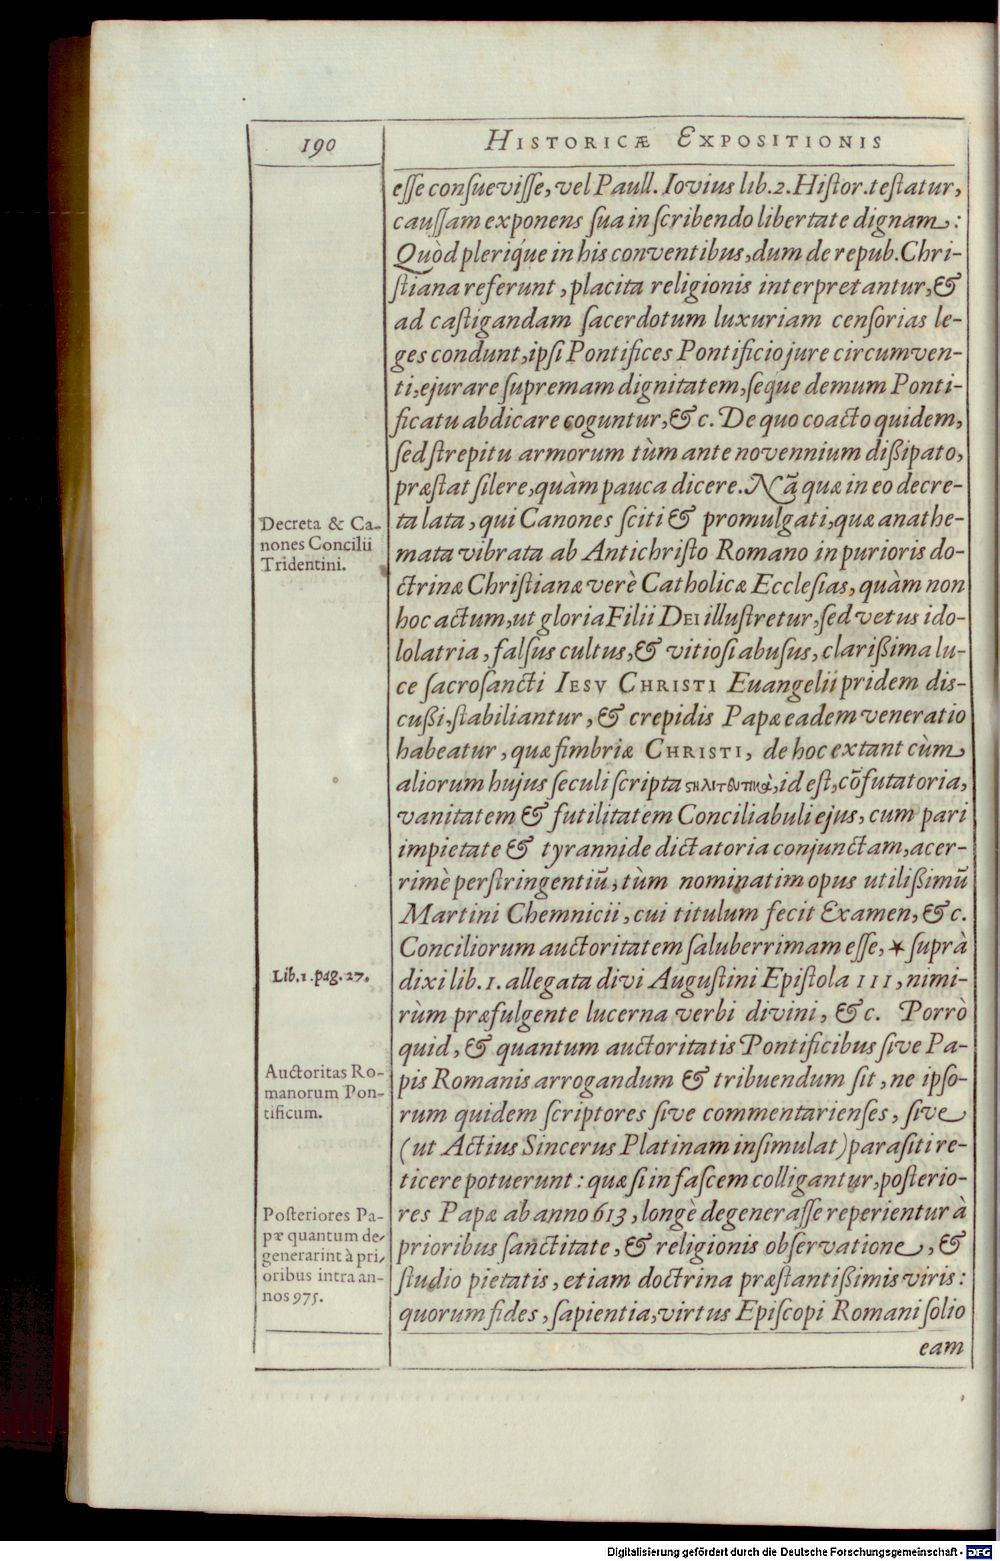 190
HISTORICÆ EXPOSITIONIS
eſſe conſueviſſe, vel Paull. Iovius lib. 2. Hiſtor. teſtatur,
cauſſam exponens ſua in ſcribendo libertate dignam:
Quòd plerique in his conventibus, dum de repub. Chri-
ſtiana referunt, placita religionis interpretantur, &
ad caſtigandam ſacerdotum luxuriam cenſorias le-
ges condunt, ipſi Pontifices Pontificio jure circumven-
ti, ejurare ſupremam dignitatem, ſeque demum Ponti-
ficatu abdicare coguntur, & c. De quo coacto quidem,
ſed ſtrepitu armorum tùm ante novennium dißipato,
præſtat ſilere, quàm pauca dicere. Nã quæ in eo decre-
Decreta & Ca-
nones Concilii
Tridentini.
ta lata, qui Canones ſciti & promulgati, quæ anathe-
mata vibrata ab Antichriſto Romano in purioris do-
ctrinæ Chriſtianæ verè Catholicæ Eccleſias, quàm non
hoc actum, ut gloria Filii DEI illuſtretur, ſed vetus ido-
lolatria, falſus cultus, & vitioſi abuſus, clarißima lu-
ce ſacroſancti IESV CHRISTI Euangelii pridem diſ-
cußi, ſtabiliantur, & crepidis Papæ eadem veneratio
habeatur, quæ fimbriæ CHRISTI, de hoc extant cùm
aliorum hujus ſeculi ſcripta , id eſt, cõfutatoria,
vanitatem & futilitatem Conciliabuli ejus, cum pari
impietate & tyrannide dictatoria conjunctam, acer-
rimè perſtringentiũ, tùm nominatim opus utilißimũ
Martini Chemnicii, cui titulum fecit Examen, & c.
Conciliorum auctoritatem ſaluberrimam eſſe, * ſuprà
Lib. 1. pag. 27.
dixi lib. 1. allegata divi Auguſtini Epiſtola 111, nimi-
rùm præfulgente lucerna verbi divini, & c. Porrò
quid, & quantum auctoritatis Pontificibus ſive Pa-
Auctoritas Ro-
manorum Pon-
tificum.
pis Romanis arrogandum & tribuendum ſit, ne ipſo-
rum quidem ſcriptores ſive commentarienſes, ſive
(ut Actius Sincerus Platinam inſimulat) paraſiti re-
ticere potuerunt: quæ ſi in faſcem colligantur, poſterio-
Poſteriores Pa-
pæ quantum de-
generarint à pri-
oribus intra an-
nos 975.
res Papæ ab anno 613, longè degeneraſſe reperientur à
prioribus ſanctitate, & religionis obſervatione, &
ſtudio pietatis, etiam doctrina præſtantißimis viris:
quorum fides, ſapientia, virtus Epiſcopi Romani ſolio
eam
Digitalisierung gefördert durch die Deutsche Forschungsgemeinschaft - DFG